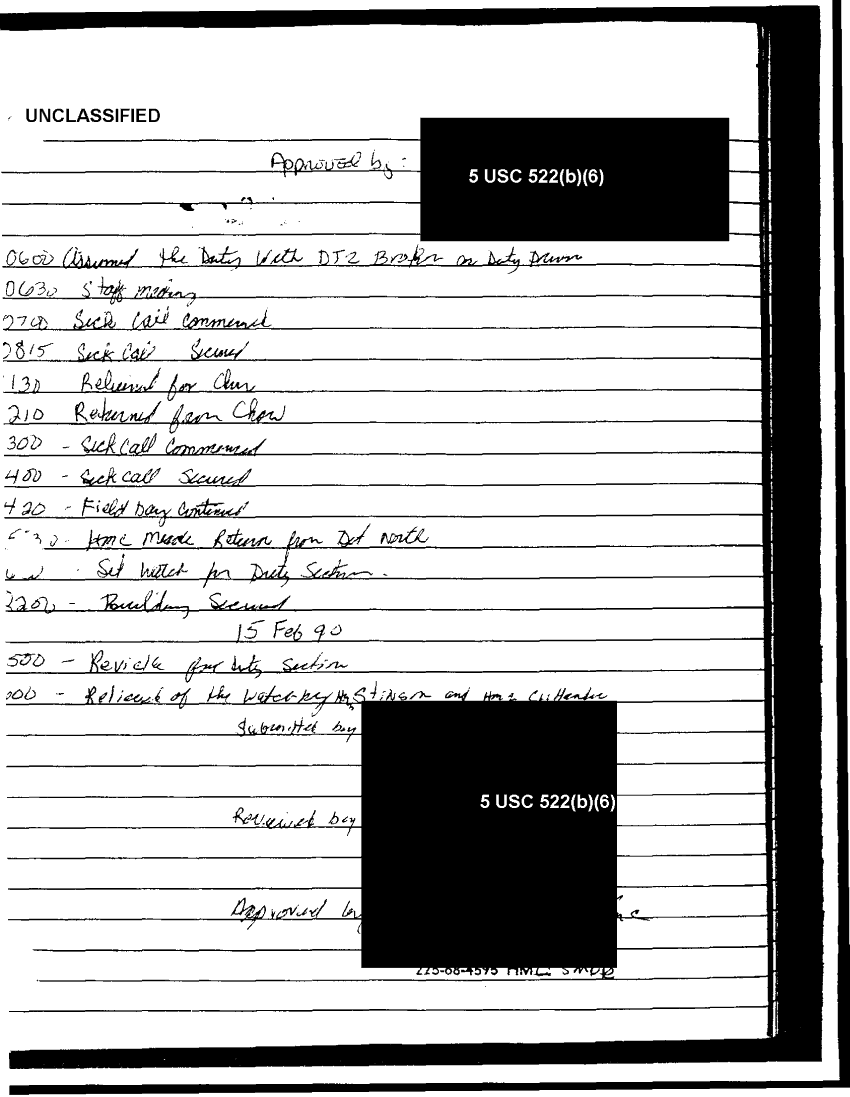 UNCLASSIFIED
Approved by:
5 USC 522(b)(6)
0600 Assumed the Duty With DT2 on Duty Driver
0630 Staff meeting
0700 Sick Call commenced
0815 Sick Call Secured
130 Relieved for Chow
210 Returned from Chow
300 - Sick Call Commenced
400 - Sick call Secured
420 - Field Day Continued
30 - HMC Meade Return from Det North
Set Watch for Duty Section.
2200 - Building Secured
15 Feb 90
500 - for duty section
00 - Relieved of the Watch by Stinson and
Submitted by
5 USC 522(b)(6)
Reviewed by
Approved by